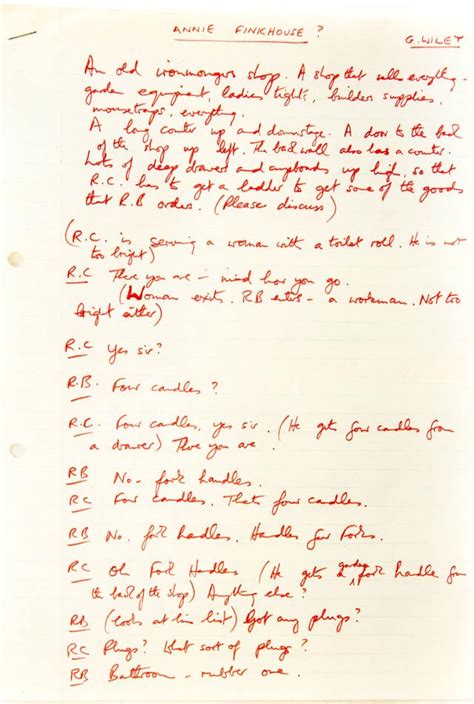 ANNIE FINKHOUSE ?
G. WILEY
An old ironmongers shop. A shop that sells everything -
garden equipment, ladies tights, builders supplies,
mousetraps, everything.
A long counter up and downstage. A door to the back
of the shop up left. The back wall also has a counter.
Lots of deep drawers and cupboards up high, so that
R.C. has to get a ladder to get some of the goods
that R.B orders. (Please discuss)
(R.C. is serving a woman with a toilet roll. He is not
too bright)
R.C There you are – mind how you go.
(Woman exits. RB enters – a workman. Not too
bright either)
R.C Yes sir?
R.B. Four candles ?
R.C. Four candles, yes sir. (He gets four candles from
a drawer) There you are.
RB No – fork handles.
RC Four candles. That's four candles.
RB No. fork handles. Handles for Forks.
RC Oh Fork Handles (He gets a garden fork handle from
the back of the shop) Anything else?
RB (looks at his list) Got any plugs?
RC Plugs? What sort of plugs?
RB Bathroom – rubber one.